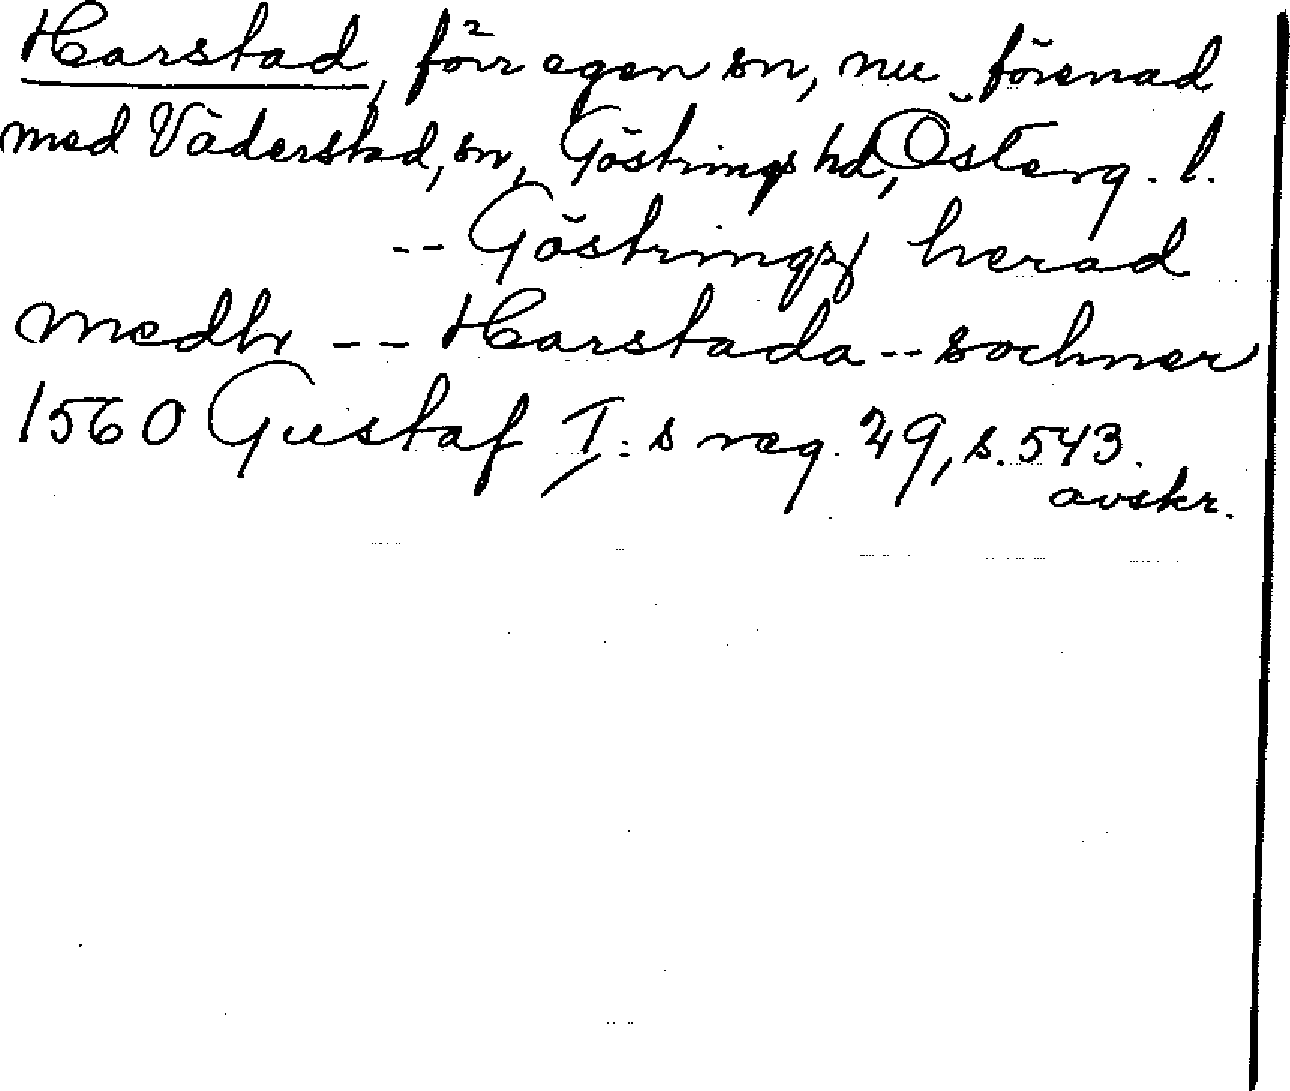 Harstad, förr egen sn, nu förenad
med Väderstad, sn, Göstrings hd, Österg. l.
-- Göstringz herad
medh -- Harstada -- sochner
1560 Gustaf I:s reg. 29, s. 543.
avskr.